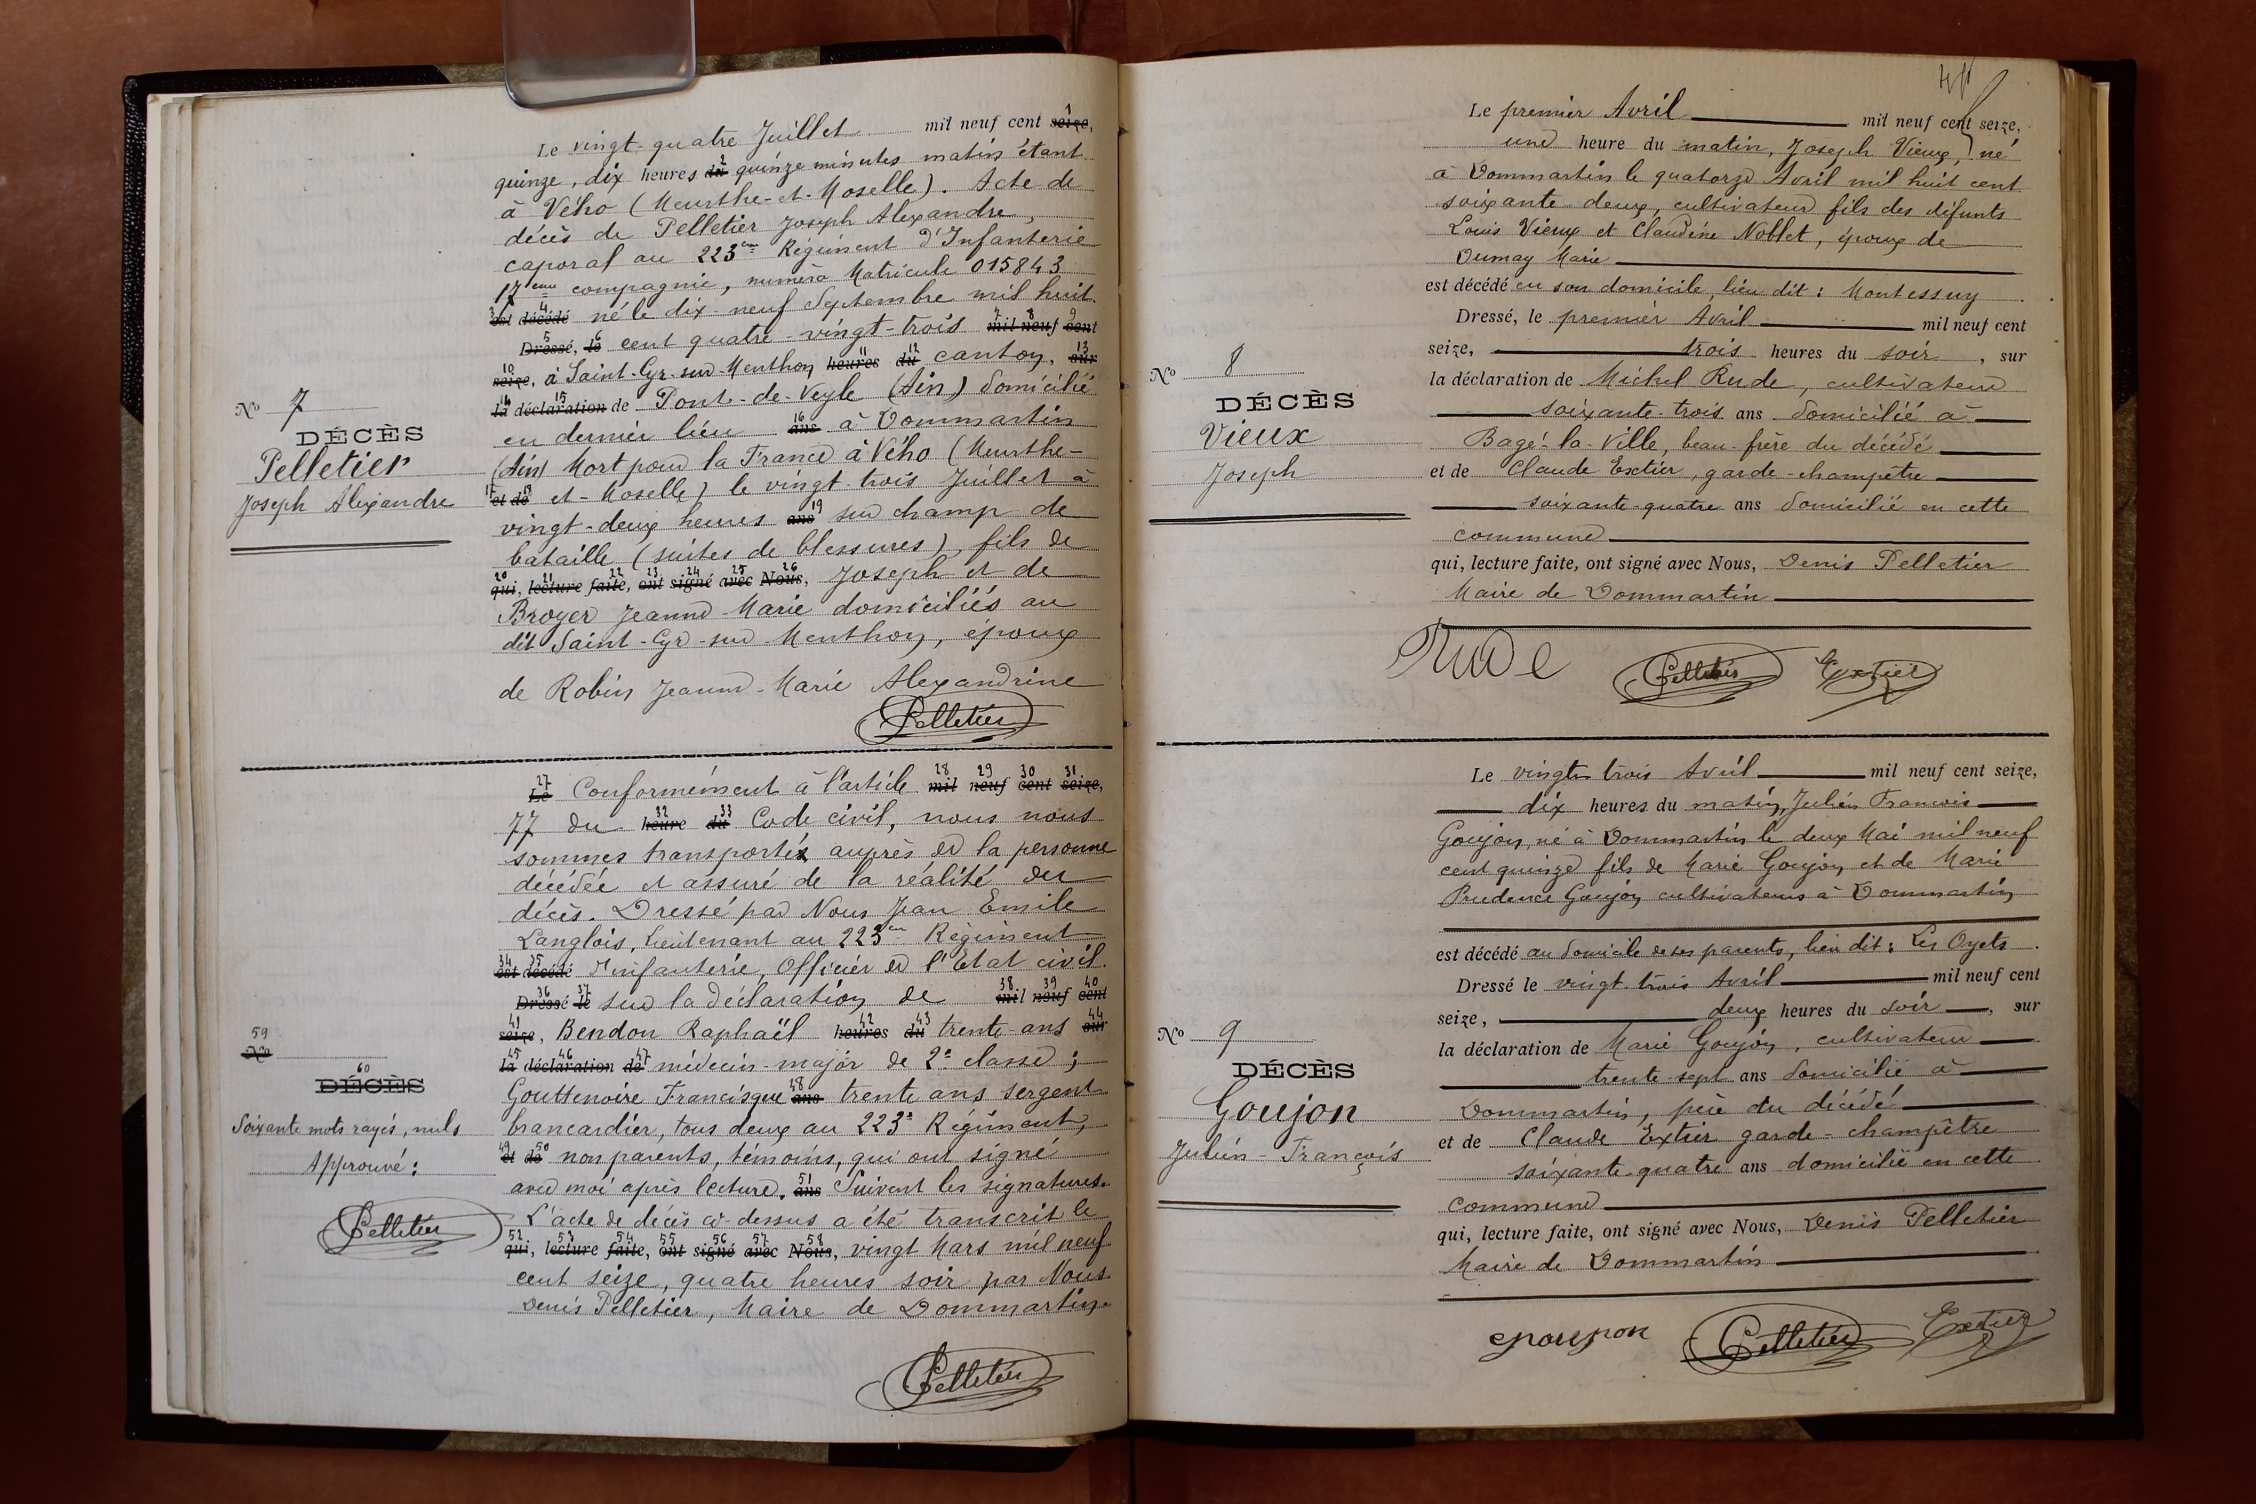 Le vingt-quatre Juillet mil neuf cent seize,
quinze, dix heures du quinze minutes matin étant
à Vého (Meurthe-et-Moselle). Acte de
décès de Pelletier Joseph Alexandre,
caporal au 223em Régiment d'Infanterie
17eme compagnie, numéro Matricule 015843
est décédé né le dix-neuf Septembre mil huit
Dressé, le cent quatre-vingt-trois mil neuf cent
seize, à Saint-Cyr-sur-Menthon heures du canton, sur
la déclaration de Pont-de-Veyle (Ain) domicilié
en dernier lieu ans à Dommartin
(Ain) Mort pour la France à Vého (Meurthe-
et de et-Moselle) le vingt-trois Juillet à
vingt-deux heures ans sur champ de
bataille (suites de blessures), fils de
qui, lecture faite, ont signé avec Nous, Joseph et de
Broyer Jeanne-Marie domiciliés au
dit Saint-Cyr-sur-Menthon, époux
de Robin Jeanne-Marie Alexandrine
Pelletier
No 7
DÉCÈS
Pelletier
Joseph Alexandre
27 28 29 30 31
Le Conformément à l'article mil neuf cent seize,
77 du heure du Code civil, nous nous
sommes transporté auprès de la personne
décédée et assuré de la réalité du
décès. Dressé par Nous Jean Emile
Langlois, Lieutenant au 223em Régiment
est décédé d'infanterie, Officier de l'Etat civil.
Dressé le sur la déclaration de mil neuf cent
seize, Bendon Raphaël heures du trente ans sur
la déclaration de médecin-major de 2e classe;
Gouttenoire Francisque ans trente ans sergent
brancardier, tous deux au 223e Régiment,
et de non parents, témoins, qui ont signé
avec moi après lecture. ans Suivent les signatures.
L'acte de décès ci-dessus a été transcrit le
qui, lecture faite, ont signé avec Nous, vingt Mars mil neuf
cent seize, quatre heures soir par Nous
Denis Pelletier, Maire de Dommartin.
Pelletier
59
No
60
DÉCÈS
Soixante mots rayés, nuls
Approuvé:
Pelletier
Le premier Avril mil neuf cent seize,
une heure du matin, Joseph Vieux, né
à Dommartin le quatorze Avril mil huit cent
soixante deux, cultivateur fils des défunts
Louis Vieux et Claudine Noblet, époux de
Dumay Marie
est décédé en son domicile, lieu dit: Montessuy.
Dressé, le premier Avril mil neuf cent
seize, trois heures du soir, sur
la déclaration de Michel Rude, cultivateur
soixante-trois ans domicilié à
Bagé-la-Ville, beau-frère du décédé
et de Claude Extier, garde-champêtre
soixante-quatre ans domicilié en cette
commune
qui, lecture faite, ont signé avec Nous, Denis Pelletier
Maire de Dommartin
Rude Pelletier Extier
No 8
DÉCÈS
Vieux
Joseph
Le vingt trois Avril mil neuf cent seize,
dix heures du matin, Julien Francois
Goujon, né à Dommartin le deux Mai mil neuf
cent quinze fils de Marie Goujon et de Marie
Prudence Goujon cultivateurs à Dommartin
est décédé au domicile de ses parents, lieu dit: Les Oyets.
Dressé le vingt-trois Avril mil neuf cent
seize, deux heures du soir, sur
la déclaration de Marie Goujon, cultivateur
trente-sept ans domicilié à
Dommartin, père du décédé
et de Claude Extier garde-champêtre
soixante-quatre ans domicilié en cette
commune
qui, lecture faite, ont signé avec Nous, Denis Pelletier
Maire de Dommartin
goujon Pelletier Extier
No 9
DÉCÈS
Goujon
Julien-François